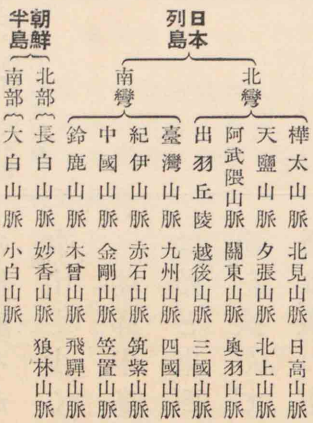 日本列島
北彎
樺太山脈 北見山脈 日高山脈
天鹽山脈 夕張山脈 北上山脈
阿武隈山脈 關東山脈 奧羽山脈
出羽丘陵 越後山脈 三國山脈
南彎
臺灣山脈 九州山脈 四國山脈
紀伊山脈 赤石山脈 筑紫山脈
中國山脈 金剛山脈 笠置山脈
鈴鹿山脈 木曾山脈 飛驒山脈
朝鮮半島
北部
長白山脈 妙香山脈 狼林山脈
南部
大白山脈 小白山脈